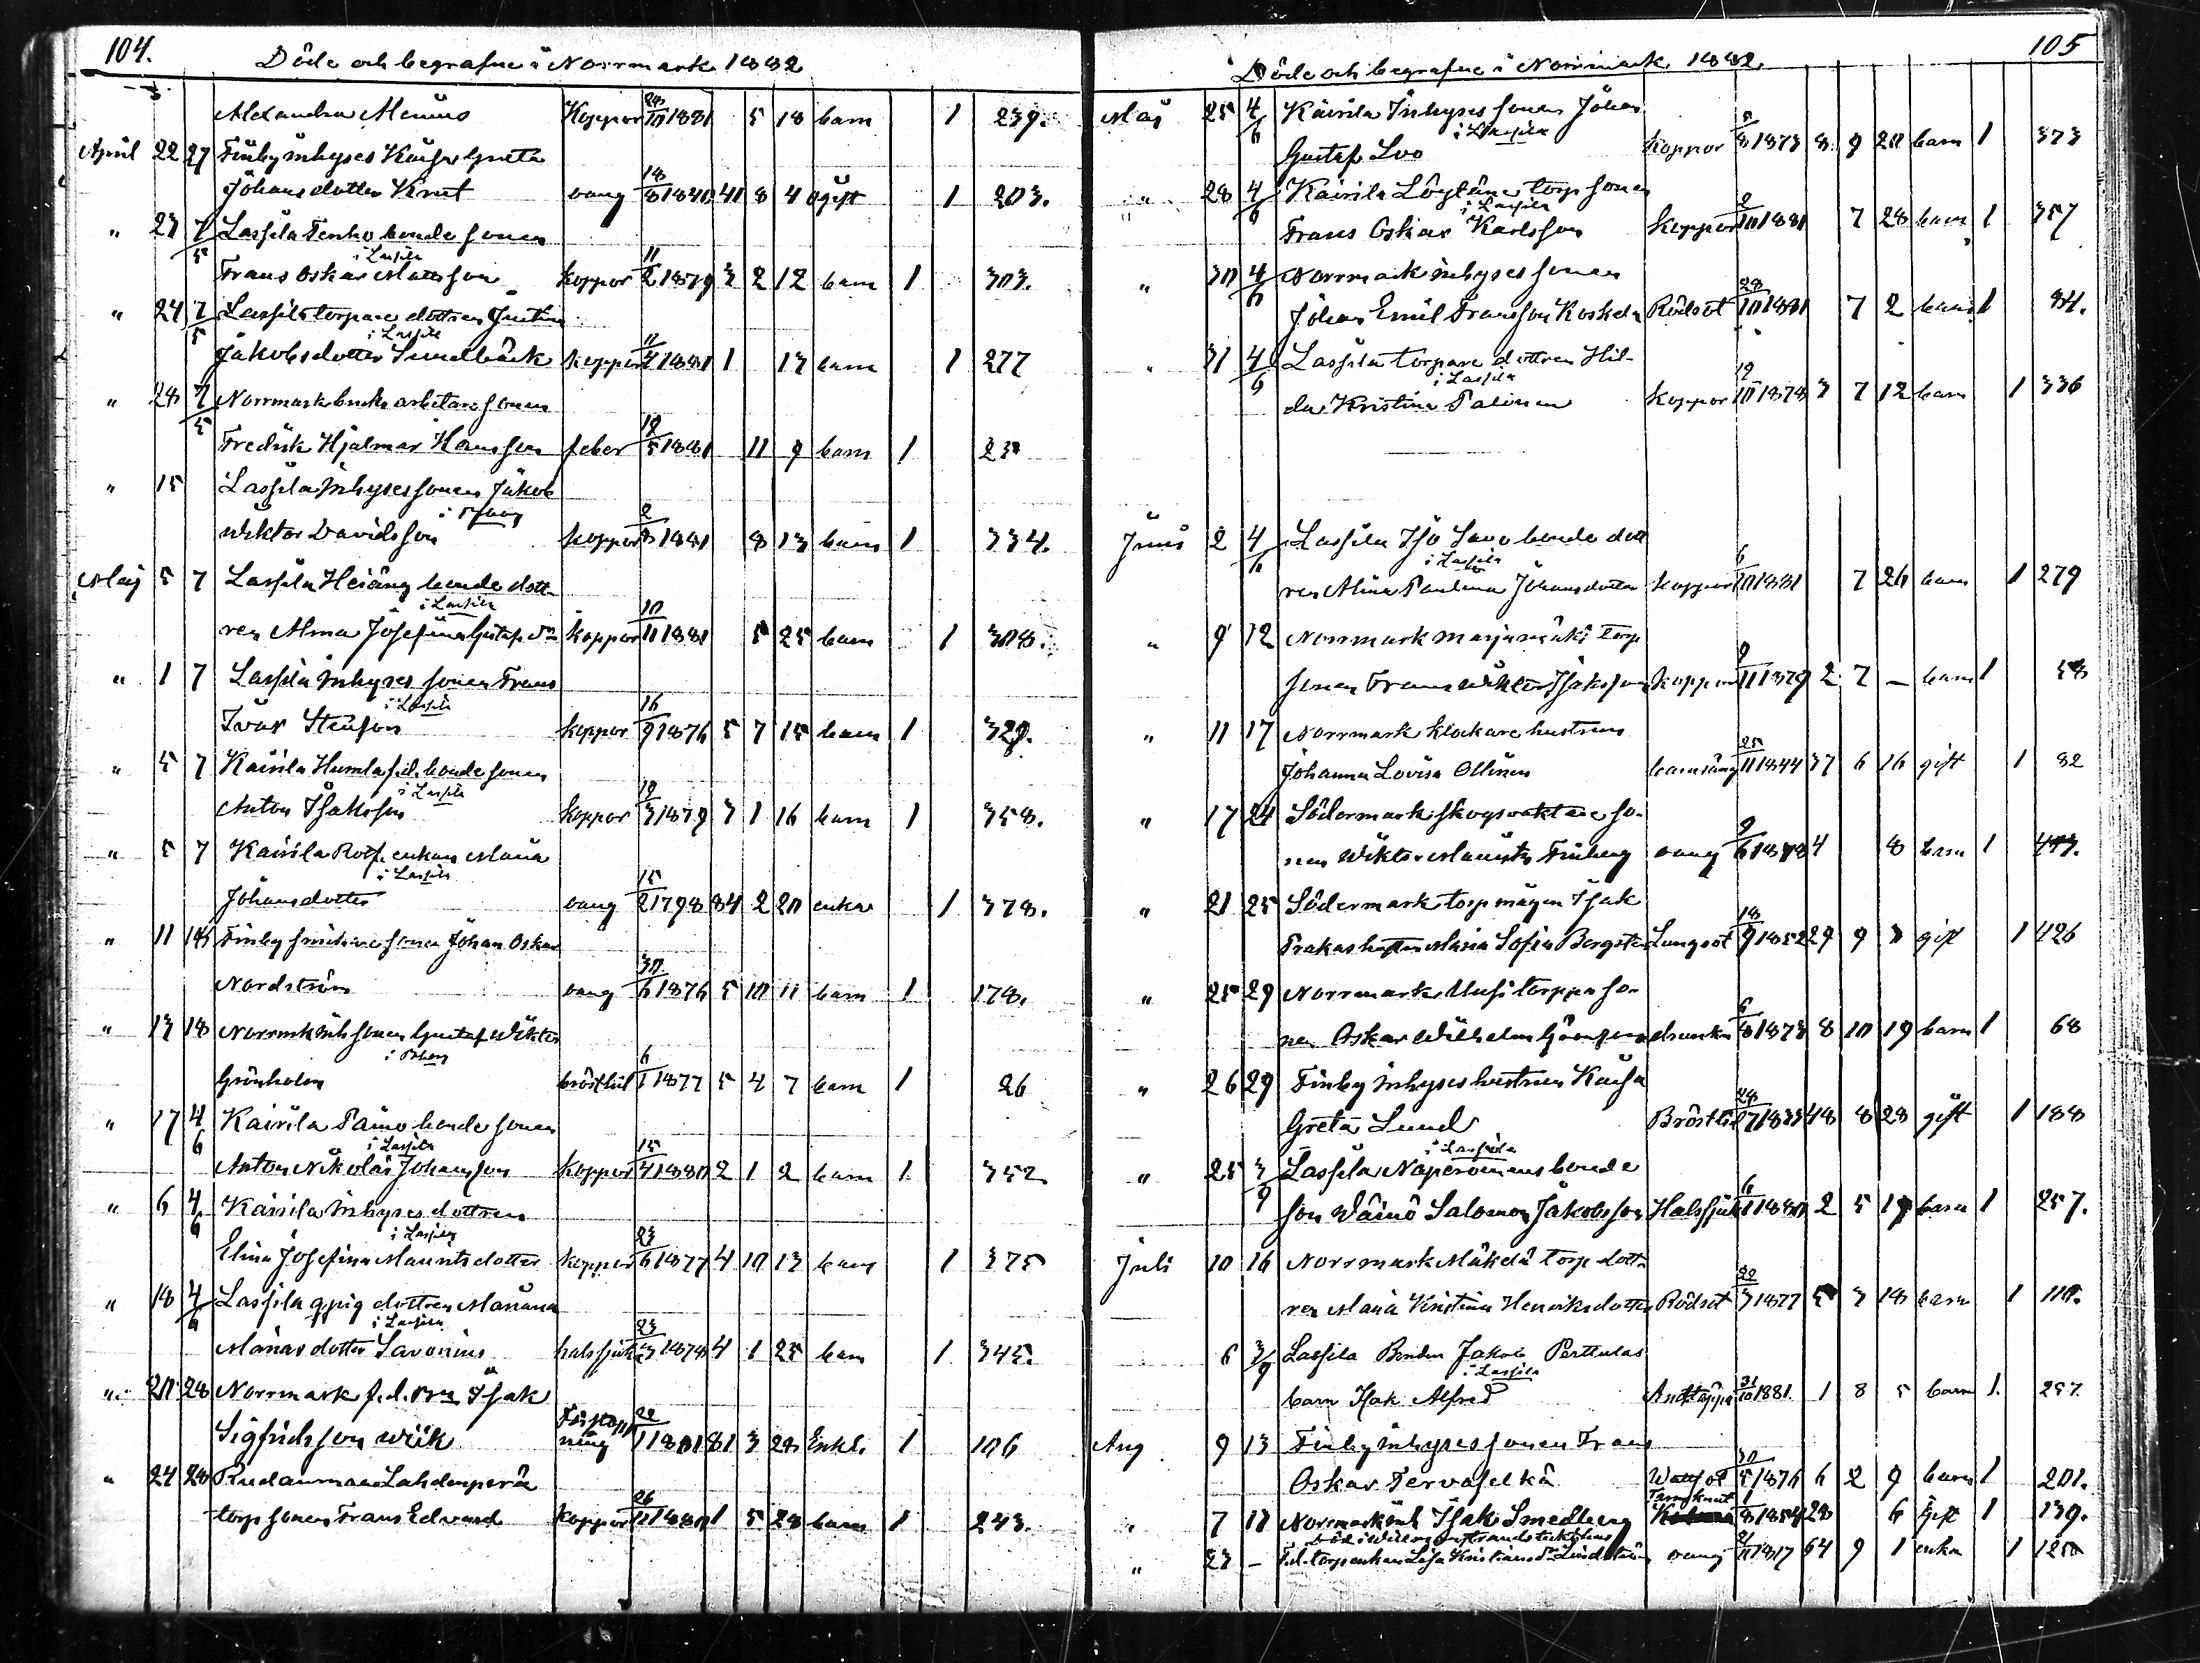 104.
Döde och begrafne i Norrmark 1882
Alexandra Menius Koppor 24/10 1881 5 18 barn 1 239.
April 22 27 Finby inhyses Kaisa Greta
Johansdotter Knut vang 18/8 1840 41 8 4 ogift 1 203.
" 23 7/5 Lassila Tenho bonde sonen
i Lassila
Frans Oskar Mattsson koppor 11/2 1879 3 2 12 barn 1 303.
" 24 7/5 Lassila torpare dottren Justina
i Lassila
Jakobsdotter Sundbäck koppor 11/4 1881 1 13 barn 1 277
" 28 7/5 Norrmark bruks arbetare sonen
Fredrik Hjalmar Hansson feber 19/5 1881 11 9 barn 1 23
" 15 Lassila Inhyses sonen Jakob
i
Wiktor Davidsson koppor 2/8 1881 8 13 barn 1 334.
Maj 5 7 Lassila Heiäng bonde dott-
i Lassila
ren Alma Josefina Gustafsdr koppor 10/11 1881 5 25 barn 1 308.
" 1 7 Lassila Inhyses sonen Frans
i Lassila
Ivar Stenson koppor 16/9 1876 5 7 15 barn 1 329.
" 5 7 Kairila Humla f.d. bonde sonen
i Lassila
Anton Isaksson koppor 19/3 1879 3 1 16 barn 1 358.
" 5 7 Kairila Rotf. enkan Maria
i Lassila
Johansdotter vang 15/2 1798 84 2 20 enka 1 378.
" 11 18 Finby smidare sonen Johan Oskar
Nordström vang 30/6 1876 5 10 11 barn 1 178.
" 13 18 Norrmk inh sonen Gustaf Wiktor
i
Grönholm bröstlid 6/1 1877 5 4 7 barn 1 26
" 17 4/6 Kairila Paino bonde sonen
i Lassila
Anton Nikolai Johansson koppor 15/4 1880 2 1 2 barn 1 352
" 6 4/6 Kairila Inhyses dottren
i Lassila
Elina Josefina Mauritsdotter koppor 23/6 1877 4 10 13 barn 1 375
" 18 4/6 Lassila qpig dottren Mariana
i Lassila
Mariasdotter Savonius halssjuk 23/3 1878 4 1 25 barn 1 345.
" 20 28 Norrmark f.d. Isak
Förstopp
Sigfridsson Wiik ning 22/1 1801 81 3 28 Enkl. 1 106
" 24 28 Rudanmaa Lahdenperä
torp sonen Frans Edvard koppor 26/11 1880 1 5 28 barn 1 243.
105
Döde och begrafne i Norrmark 1882.
Maj 25 4/6 Kairila Inhyses sonen Johan
i Lassila
Gustaf Ivo koppor 5/8 1873 8 9 20 barn 1 373
" 28 4/6 Kairila Löytäne torp sonen
i Lassila
Frans Oskar Karlsson koppor 2/10 1881 7 28 barn 1 357
" 30 4/6 Norrmark inhyses sonen
Johan Emil Fransson Koskela Rödsot 28/10 1881 7 2 barn 1 84.
" 31 4/6 Lassila torpare dottren Hil-
i Lassila
da Kristina Palinen koppor 19/10 1878 3 7 12 barn 1 336
Juni 2 4/6 Lassila Iso Savo bonde dott
i Lassila
ren Alina Paulina Johansdotter koppor 6/10 1881 7 26 barn 1 279
" 9 12 Norrmark Marjamäki torp
sonen Frans Wiktor Isaksson koppor 9/11 1879 2 7 — barn 1 58
" 11 17 Norrmark klockare hustrun
Johanna Lovisa Ollinen barnsäng 25/11 1844 37 6 16 gift 1 32
" 17 24 Södermark skogsvaktare so-
nen Wiktor Maurits Finberg vang 9/6 1878 4 8 barn 1
" 21 25 Södermark torp mågen Isak
Prakas hustru Maria Sofia Bergsten Lungsot 18/9 1852 29 9 3 gift 1 426
" 25 29 Norrmark Uusi torppa so-
nen Oskar Wilhelm drunkn 6/8 1873 8 10 19 barn 1 68
" 26 29 Finby Inhyses hustrun Kaisa
Greta Lund Bröstlid 28/7 1833 48 8 28 gift 1 188
i Lassila
" 25 3/9 Lassila bonde
son Wäinö Salomon Jakobsson Halssjuk 6/1 1880 2 5 19 barn 1 257.
Juli 10 16 Norrmark Mäkelä torp dott-
ren Maria Kristina Henriksdotter Rödsot 22/3 1877 5 3 18 barn 1 110.
6 3/9 Lassila Bonden Jakob Perttulas
i Lassila
barn Isak Alfred Andtäppa 31/10 1881. 1 8 5 barn 1. 257
Aug 9 13 Finby Inhyses sonen Frans
Oskar Tervaselkä Wattsot 30/5 1876 6 2 9 barn 1 201.
Tarmknut
" 7 17 Norrmark inh Isak Smedberg 1/8 1854 28 6 Gift 1 139.
" 23 — F.d. torp enkan Lisa Kristiansdr Lindström vang 21/11 1817 64 9 1 enka 1 125